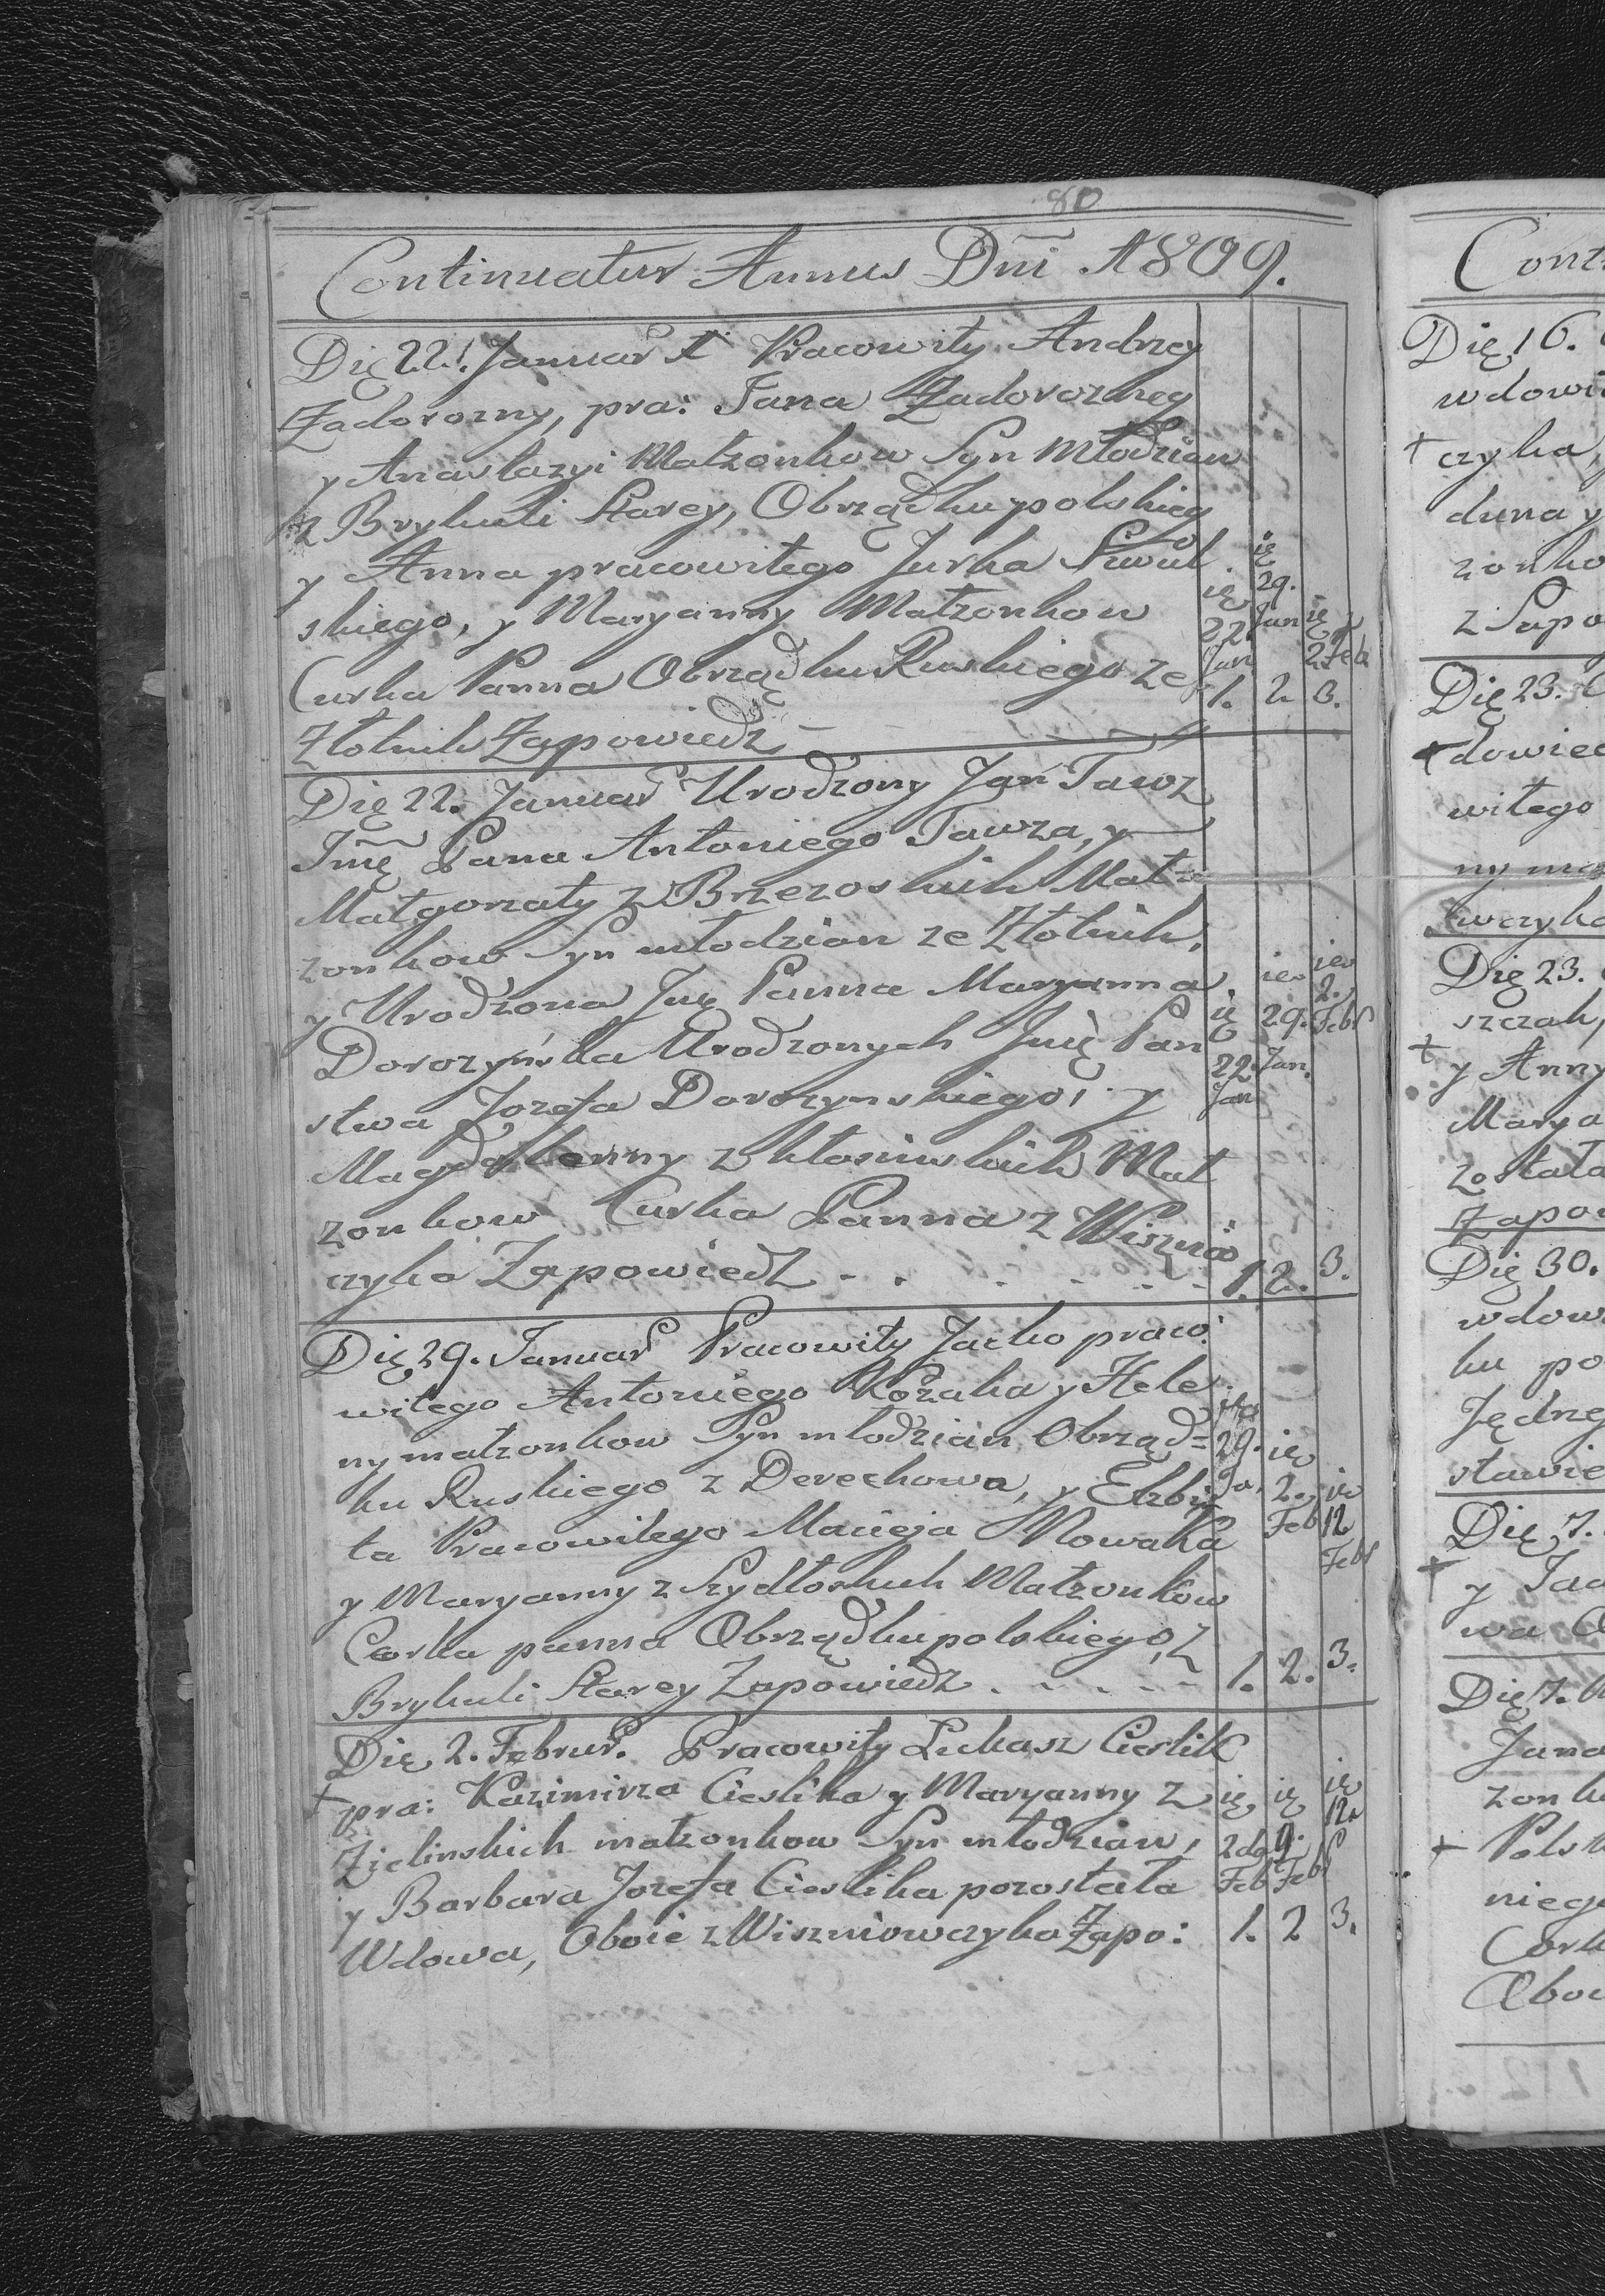 80
Continuatur Annus Dni 1809.
Dię 22. Januar Pracowity Andrzey
Zadorozny, pra: Jana Zadorozneg
y Anastazyi Małzonkow Syn Młodzian
z Brykuli Starey, Obrządku polskieg
y Anna pracowitego Jurka
skiego, y Maryanny Małzonkow
Curka Panna Obrządku Ruskiego ze
Złotnik Zapowiedz
ię 22 Jan 1.
ię 29. Jan 2
ię 2 Feb 3.
Dię 22. Januar Urodzony Jan Tawz
Jmę Pana Antoniego Tawza, y
Małgorzaty z Brzezoskich Mał=
zonkow Syn młodzian ze Złotnik,
y Urodzona Jmę Panna Maryanna
Dorozyńska Urodzonych Jmę Pan
stwa Jozefa Dorozynskiego, y
Magdalenny z Kłosinskich Mał
zonkow Curka Panna z Wiszniow
czyka Zapowiedz
ię 22. Jan 1.
ie 29. Jan. 2.
ie 2. Feb 3.
Dię 29. Januar Pracowity Jacko praco:
witego Antoniego Kozaka y Hele
ny małzonkow Syn młodzian, Obrząd=
ku Ruskiego z Derechowa, y Elzbie
ta Pracowitego Macieja Nowaka
y Maryanny z Szydłoskich Małzonkow
Corka panna Obrządku polskiego, z
Brykuli Starey Zapowiedz
29. Ja. 1.
ie 2. Feb 2.
ie 12 Feb 3.
Dię 2. Februr. Pracowity Lukasz Cieslik
+ pra: Kazimirza Cieslika y Maryanny z
Zielinskich małzonkow Syn młodzian,
y Barbara Jozefa Cieslika pozostała
Wdowa, Oboie z Wiszniowczyka Zapo:
ię 2da Feb 1.
ię Feb 2
ię 12a 3.
Cont
Dię 16.
wdowi
+ czyka,
duna y
zonko
z Sapo
Dię 23.
dowiec
witego
ny ma
wczyka
Dię 23.
szczak,
+ y Anny
Marya
zostala
Zapow
Dię 30.
wdow
ku po
Jędrze
stawie
Dię 7.
+ y Jac
wa O
Dię 7.
Jana
zonk
+ Polsk
nieg
Cork
Obow